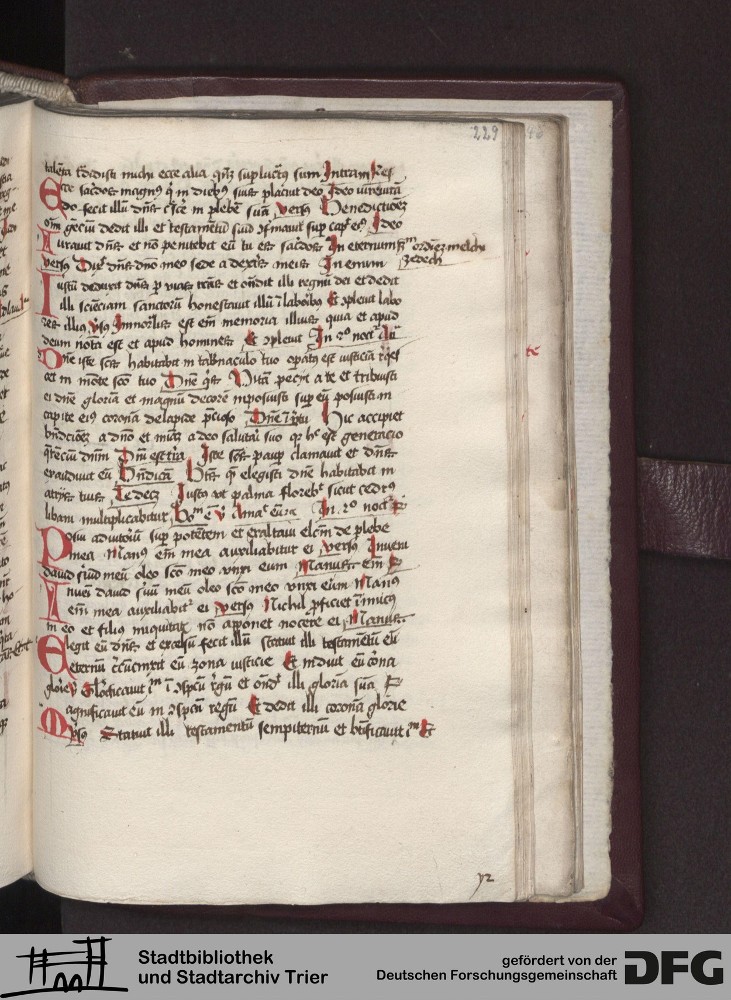 229
talenta tradidisti michi ecce alia quinque superlucratus sum Intra in Res
Ecce sacerdos magnus qui in diebus suis placuit deo Ideo iureiurando
fecit illum dominus crescere in plebem suam versus Benedictionem
omnium gencium dedit illi et testamentum suum confirmauit super caput eius Ideo
Iurauit dominus et non penitebit eum tu es sacerdos In eternum secundum ordinem melchi
zedech
versus Dixit dominus domino meo sede a dextris meis In eternum
Iustum deduxit dominus per vias rectas et ostendit illi regnum dei et dedit
illi scienciam sanctorum honestauit illum in laboribus Et compleuit labo
res illius versus Immortalis est enim memoria illius quia et apud
deum nota est et apud homines Et compleuit In 2o nocturno
Domine iste sanctus habitabit in tabernaculo tuo operatus est iusticiam requiescet
in monte sancto tuo Domine quis Vitam peciit a te et tribuisti
ei domine gloriam et magnum decorem imposuisti super eum posuisti in
capite eius coronam de lapide precioso Domine in virtute Hic accipiet
benedictionem a domino et misericordiam a deo salutari suo quia hec est generacio
querencium dominum Domini est terra Iste sanctus pauper clamauit et dominus
exaudiuit eum Benedicam Beatus quem elegisti domine habitabit in
atriis tuis Te decet Iustus ut palma florebit sicut cedrus
libani multiplicabitur Bonum est Amauit eum In 2o nocturno
Posui adiutorium super potentem et exaltaui electum de plebe
mea Manus enim mea auxiliabitur ei versus Inueni
dauid seruum meum oleo sancto meo vnxi eum Manus enim
Inueni dauid seruum meum oleo sancto meo vnxi eum Manus
enim mea auxiliabitur ei versus Nichil proficiet inimicus
in eo et filius iniquitatis non apponet nocere ei Manus
Elegit eum dominus et excelsum fecit illum statuit illi testamentum
eternum circumcinxit eum zona iusticie Et induit eum corona
glorie Glorificauit eum in conspectu regum et ostendit illi gloriam suam
Magnificauit eum in conspectu regum Et dedit illi coronam glorie
versus Statuit illi testamentum sempiternum et beatificauit
Stadtbibliothek
und Stadtarchiv Trier
gefördert von der
Deutschen Forschungsgemeinschaft
DFG